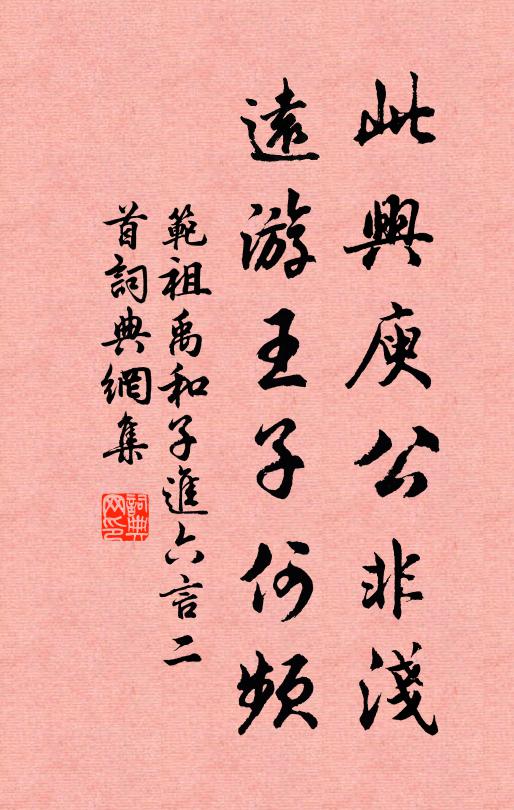 此興庾公非淺
遠游王子何頻
範祖禹和子進六言二
首詞典網集
詞典網印